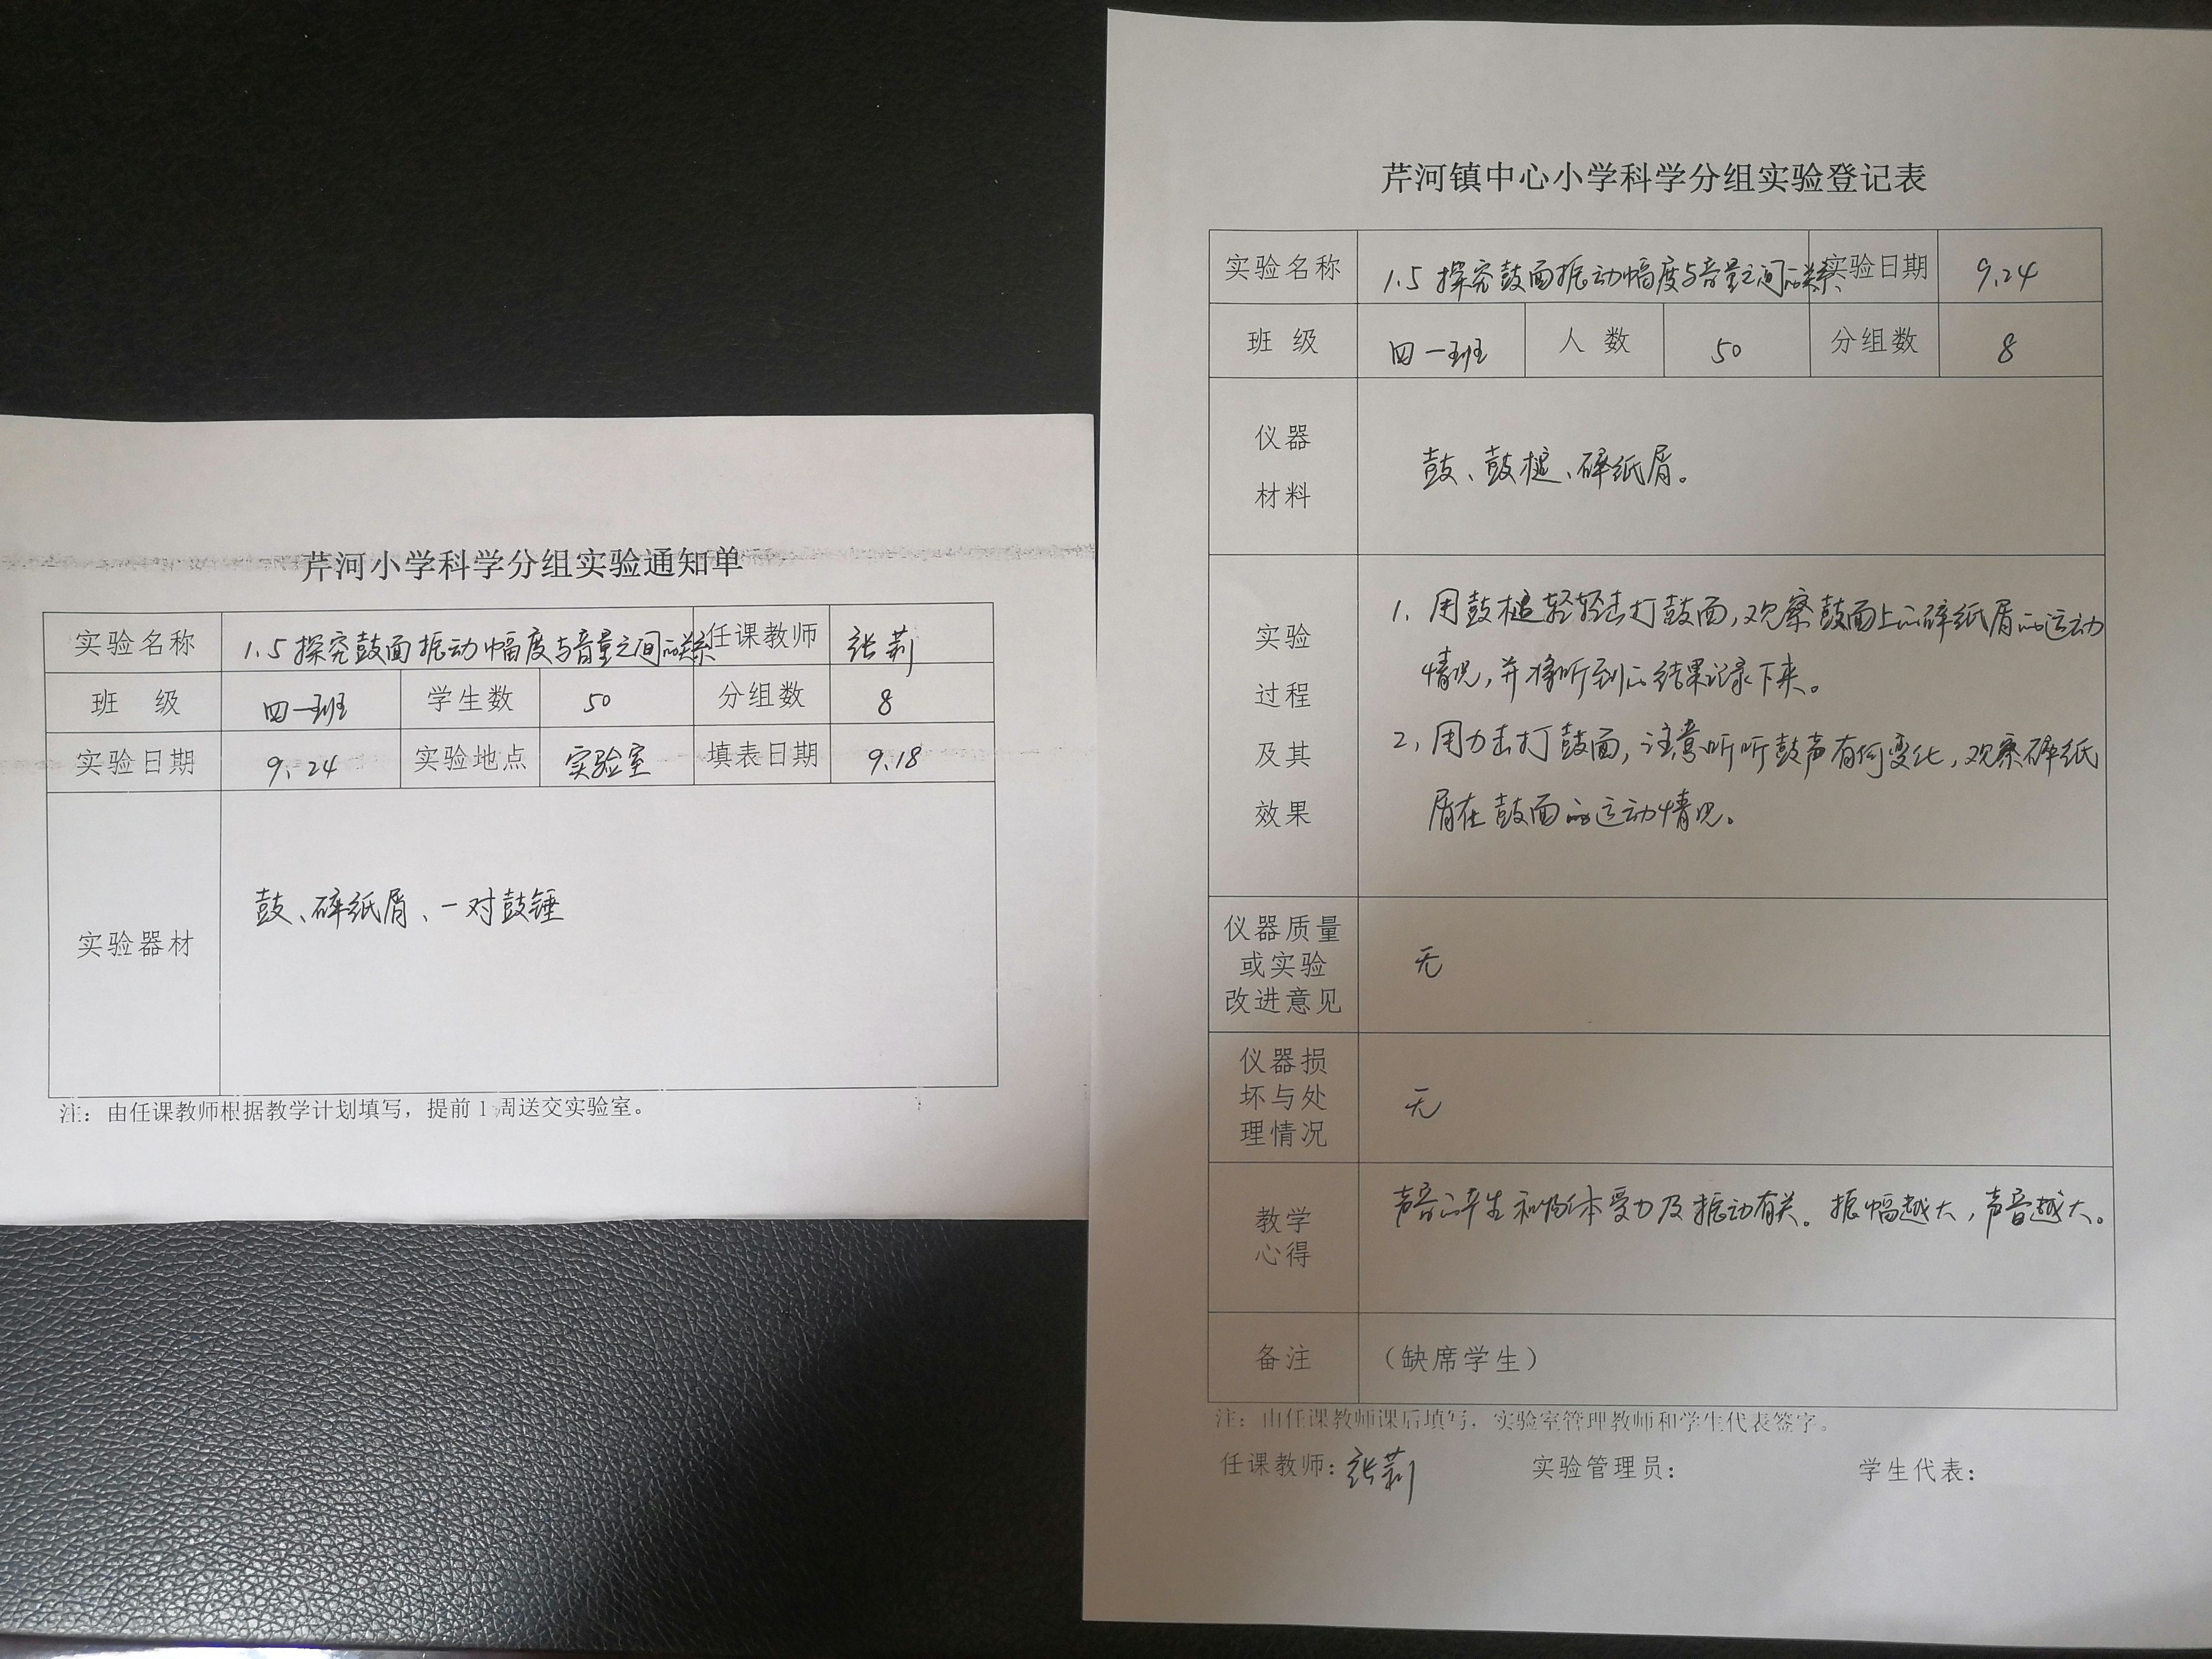 芹河小学科学分组实验通知单
实验名称 1.5 探究鼓面振动幅度与音量之间的关系 任课教师 张莉
班 级 四一班 学生数 50 分组数 8
实验日期 9.24 实验地点 实验室 填表日期 9.18
实验器材 鼓、碎纸屑、一对鼓锤
注：由任课教师根据教学计划填写，提前1周送交实验室。
芹河镇中心小学科学分组实验登记表
实验名称 1.5 探究鼓面振动幅度与音量之间的关系 实验日期 9.24
班 级 四一班 人 数 50 分组数 8
仪器
材料
鼓、鼓槌、碎纸屑。
实验
过程
及其
效果
1. 用鼓槌轻轻击打鼓面，观察鼓面上的碎纸屑的运动
情况，并将听到的结果记录下来。
2, 用力击打鼓面，注意听听鼓声有何变化，观察碎纸
屑在鼓面的运动情况。
仪器质量
或实验
改进意见
无
仪器损
坏与处
理情况
无
教学
心得
声音的产生和物体受力及振动有关。振幅越大，声音越大。
备注 （缺席学生）
注：由任课教师课后填写，实验室管理教师和学生代表签字。
任课教师：张莉 实验管理员： 学生代表：